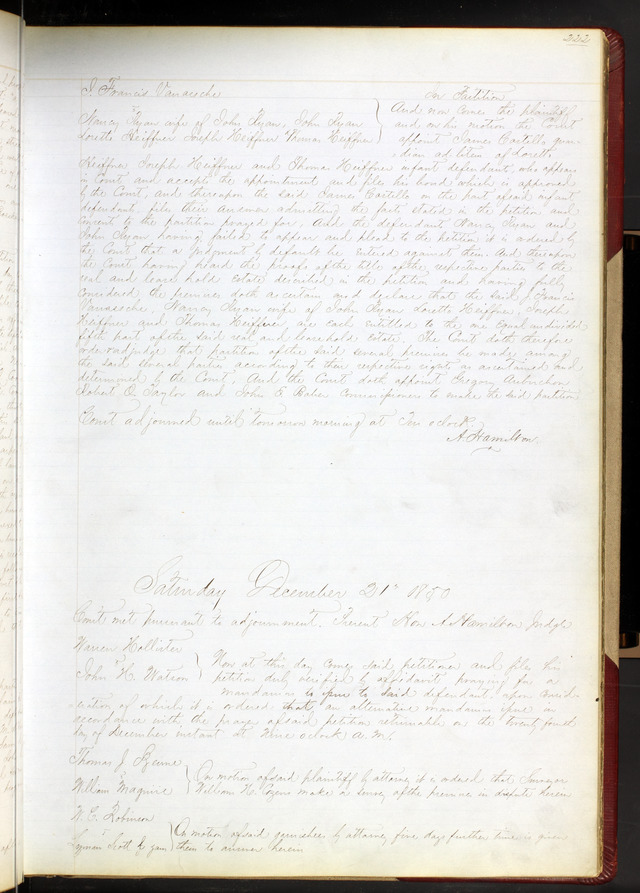 222
J Francis Vanassche
vs
Nancy Ryan wife of John Ryan, John Ryan
Loretto Heiffner Joseph Heiffner Thomas Heiffner
In Partition
And now come the plaintiff
and on his motion the Court
appoint James Castello guar-
dian ad litem of Loretto
Heiffner Joseph Heiffner and Thomas Heiffner infant defendants, who appears
in Court and accepts the appointment and files his bond which is approved
by the Court, and thereupon the said James Castello on the part of said infant
defendants, files their answer admitting the facts stated in the petition and
consent to the partition prayed for, And the defendants Nancy Ryan and
John Ryan having failed to appear and plead to the petition it is ordered by
the Court that a judgment by default be entered against them. And thereupon
the Court having heard the proofs of the title of the respective parties to the
real and lease hold estate described in the petition and having fully
considered the premises doth ascertain and declare that the said J Francis
Vanassche, Nancy Ryan wife of John Ryan Loretto Heiffner, Joseph
Heiffner and Thomas Heiffner are each entitled to the one equal undivided
fifth part of the said real and leasehold estate. The Court doth therefore
order & adjudge that partition of the said several premises be made among
the said several parties according to their respective rights as ascertained and
determined by the Court, And the Court doth appoint Gregory Aubuchon
Robert O. Taylor and John G Baker Commissioners to make the said partition
Court adjourned until tomorrow morning at Ten oclock.
A. Hamilton.
Saturday December 21st 1850
Court met pursuant to adjournment. Present Hon A Hamilton Judge
Warren Hollister
vs
John H. Watson
Now at this day comes said petitioner and files his
petition duly verified by affidavit praying for a
mandamus to issue to said defendant, upon consid-
eration of which it is ordered that, an alternative mandamus issue in
accordance with the prayer of said petition returnable on the twenty fourth
day of December instant at Nine oclock A.M.
Thomas J. Byrne
vs
William Maguire
On motion of said plaintiff by attorney it is ordered that Surveyor
William H. Cozens make a survey of the premises in dispute herein
W. E. Robinson
vs
Lyman Scott & garn
On motion of said garnishee by attorney five days further time is given
them to answer herein